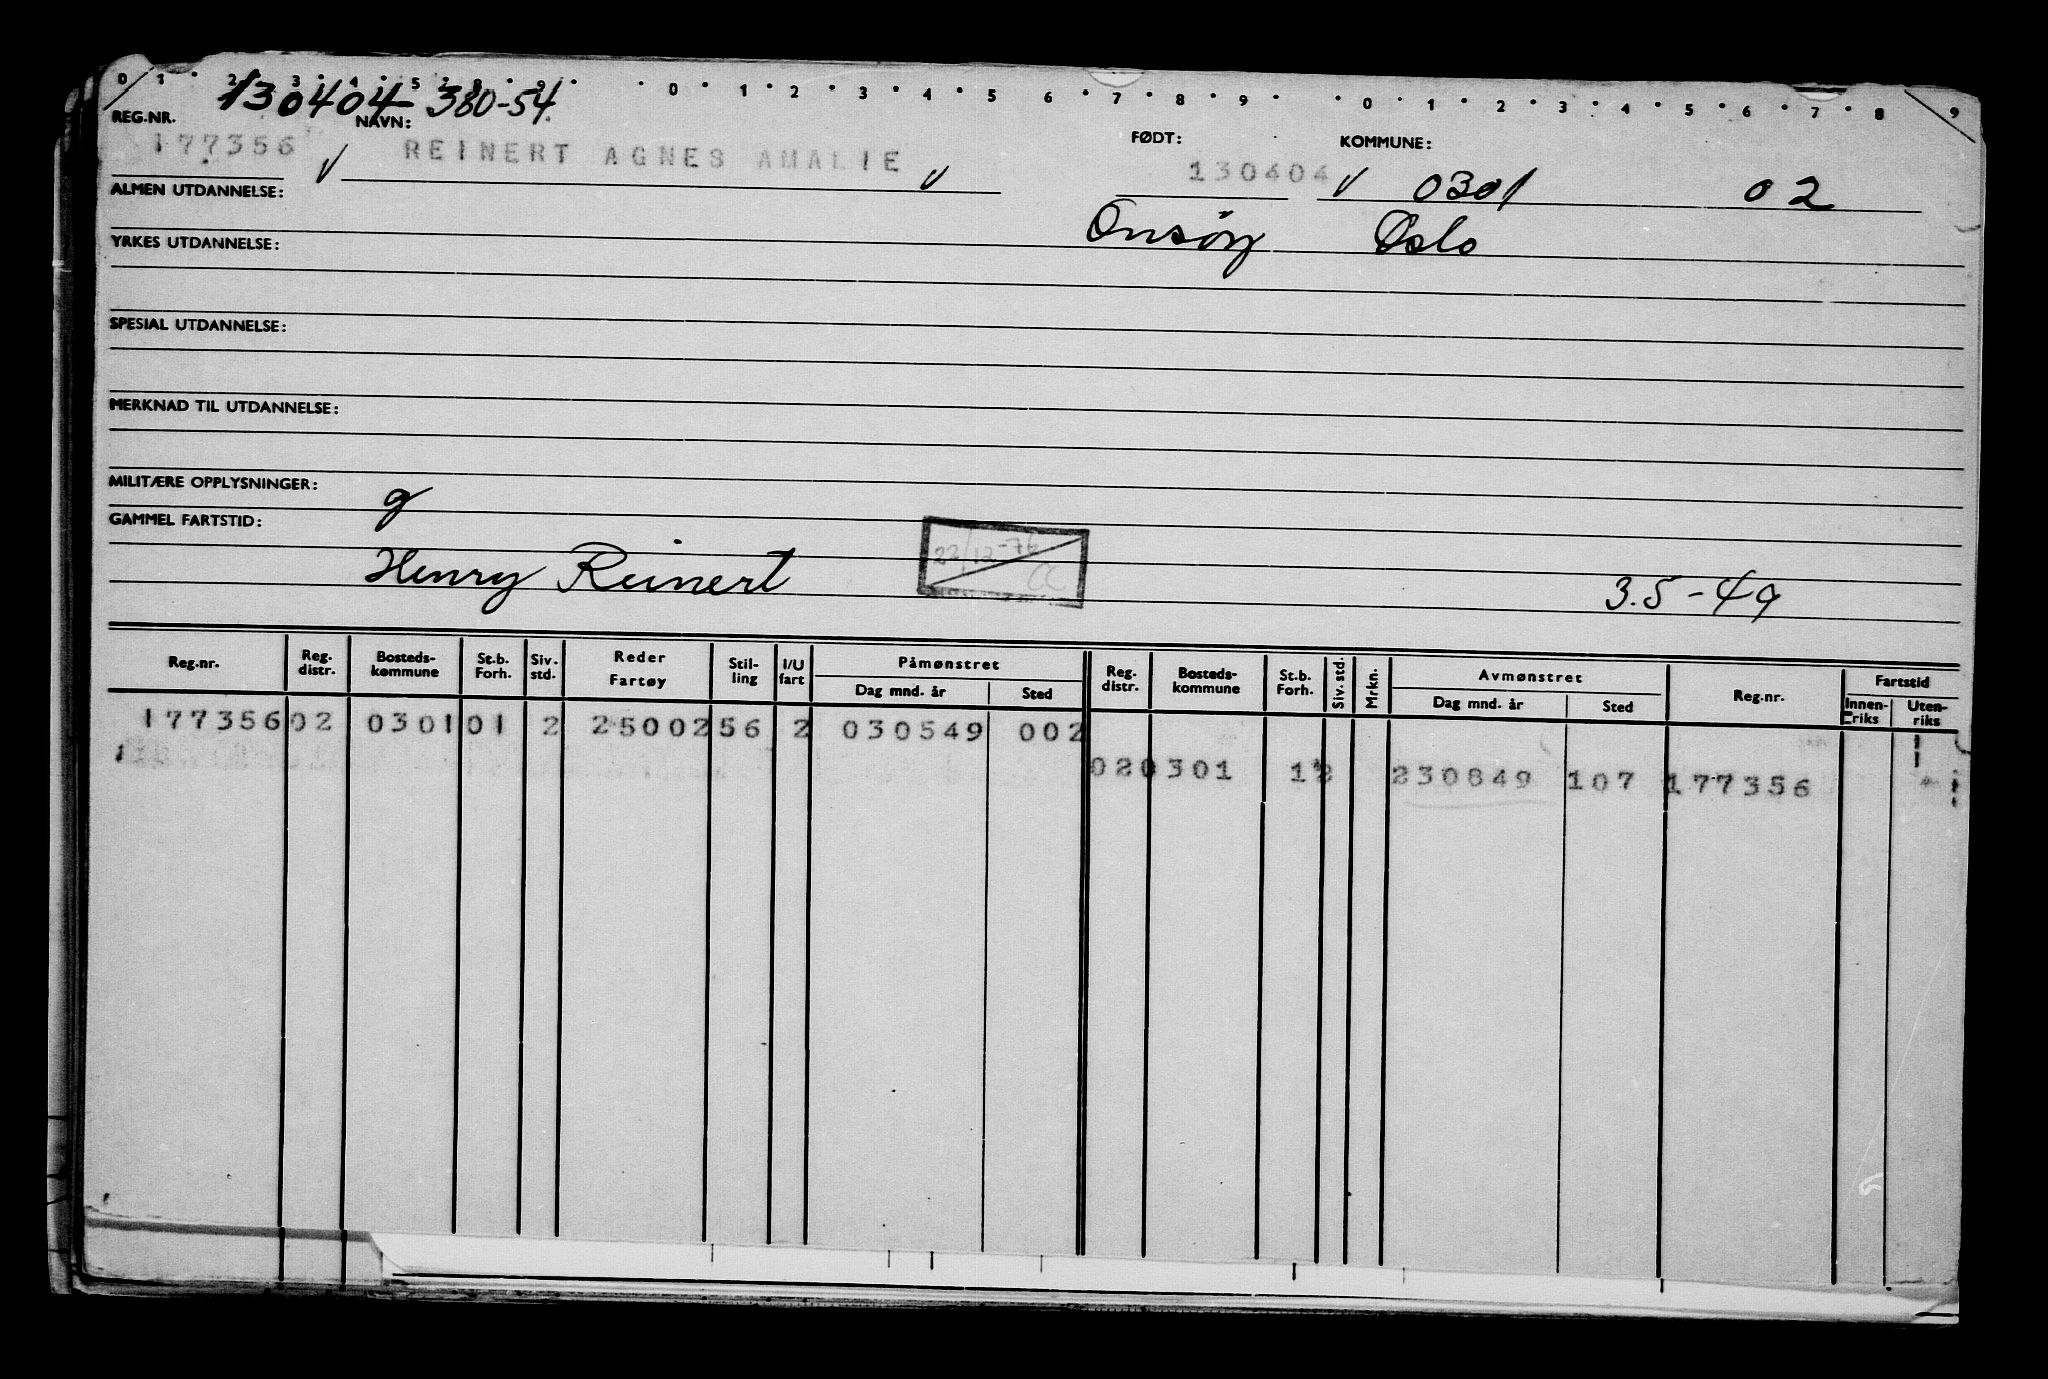 0 1 2 3 4 5 7 8 9 0 1 2 3 4 5 6 7 8 9 0 1 2 3 4 5 6 7 8 9
130404 380-54
REG.NR. NAVN: FØDT: KOMMUNE:
177356 REINERT AGNES AMALIE 130404 0301 02
ALMEN UTDANNELSE: Onsøy Oslo
YRKES UTDANNELSE:
SPESIAL UTDANNELSE:
MERKNAD TIL UTDANNELSE:
MILITÆRE OPPLYSNINGER: g
GAMMEL FARTSTID:
22/12-76 CC
Henry Reinert 3.5-49
Reg.nr. Reg. distr. Bosteds-kommune St.b. Forh. Siv. std. Reder Fartøy Stil-ling I/U fart Påmønstret Dag mnd. år Sted Reg. distr. Bosteds-kommune St.b. Forh. Siv. std. Mrkn. Avmønstret Dag mnd. år Sted Reg.nr. Fartstid Innen-riks Uten-riks
177356 02 0301 01 2 25002 56 2 030549 002
02 0301 1 2 230849 107 177356